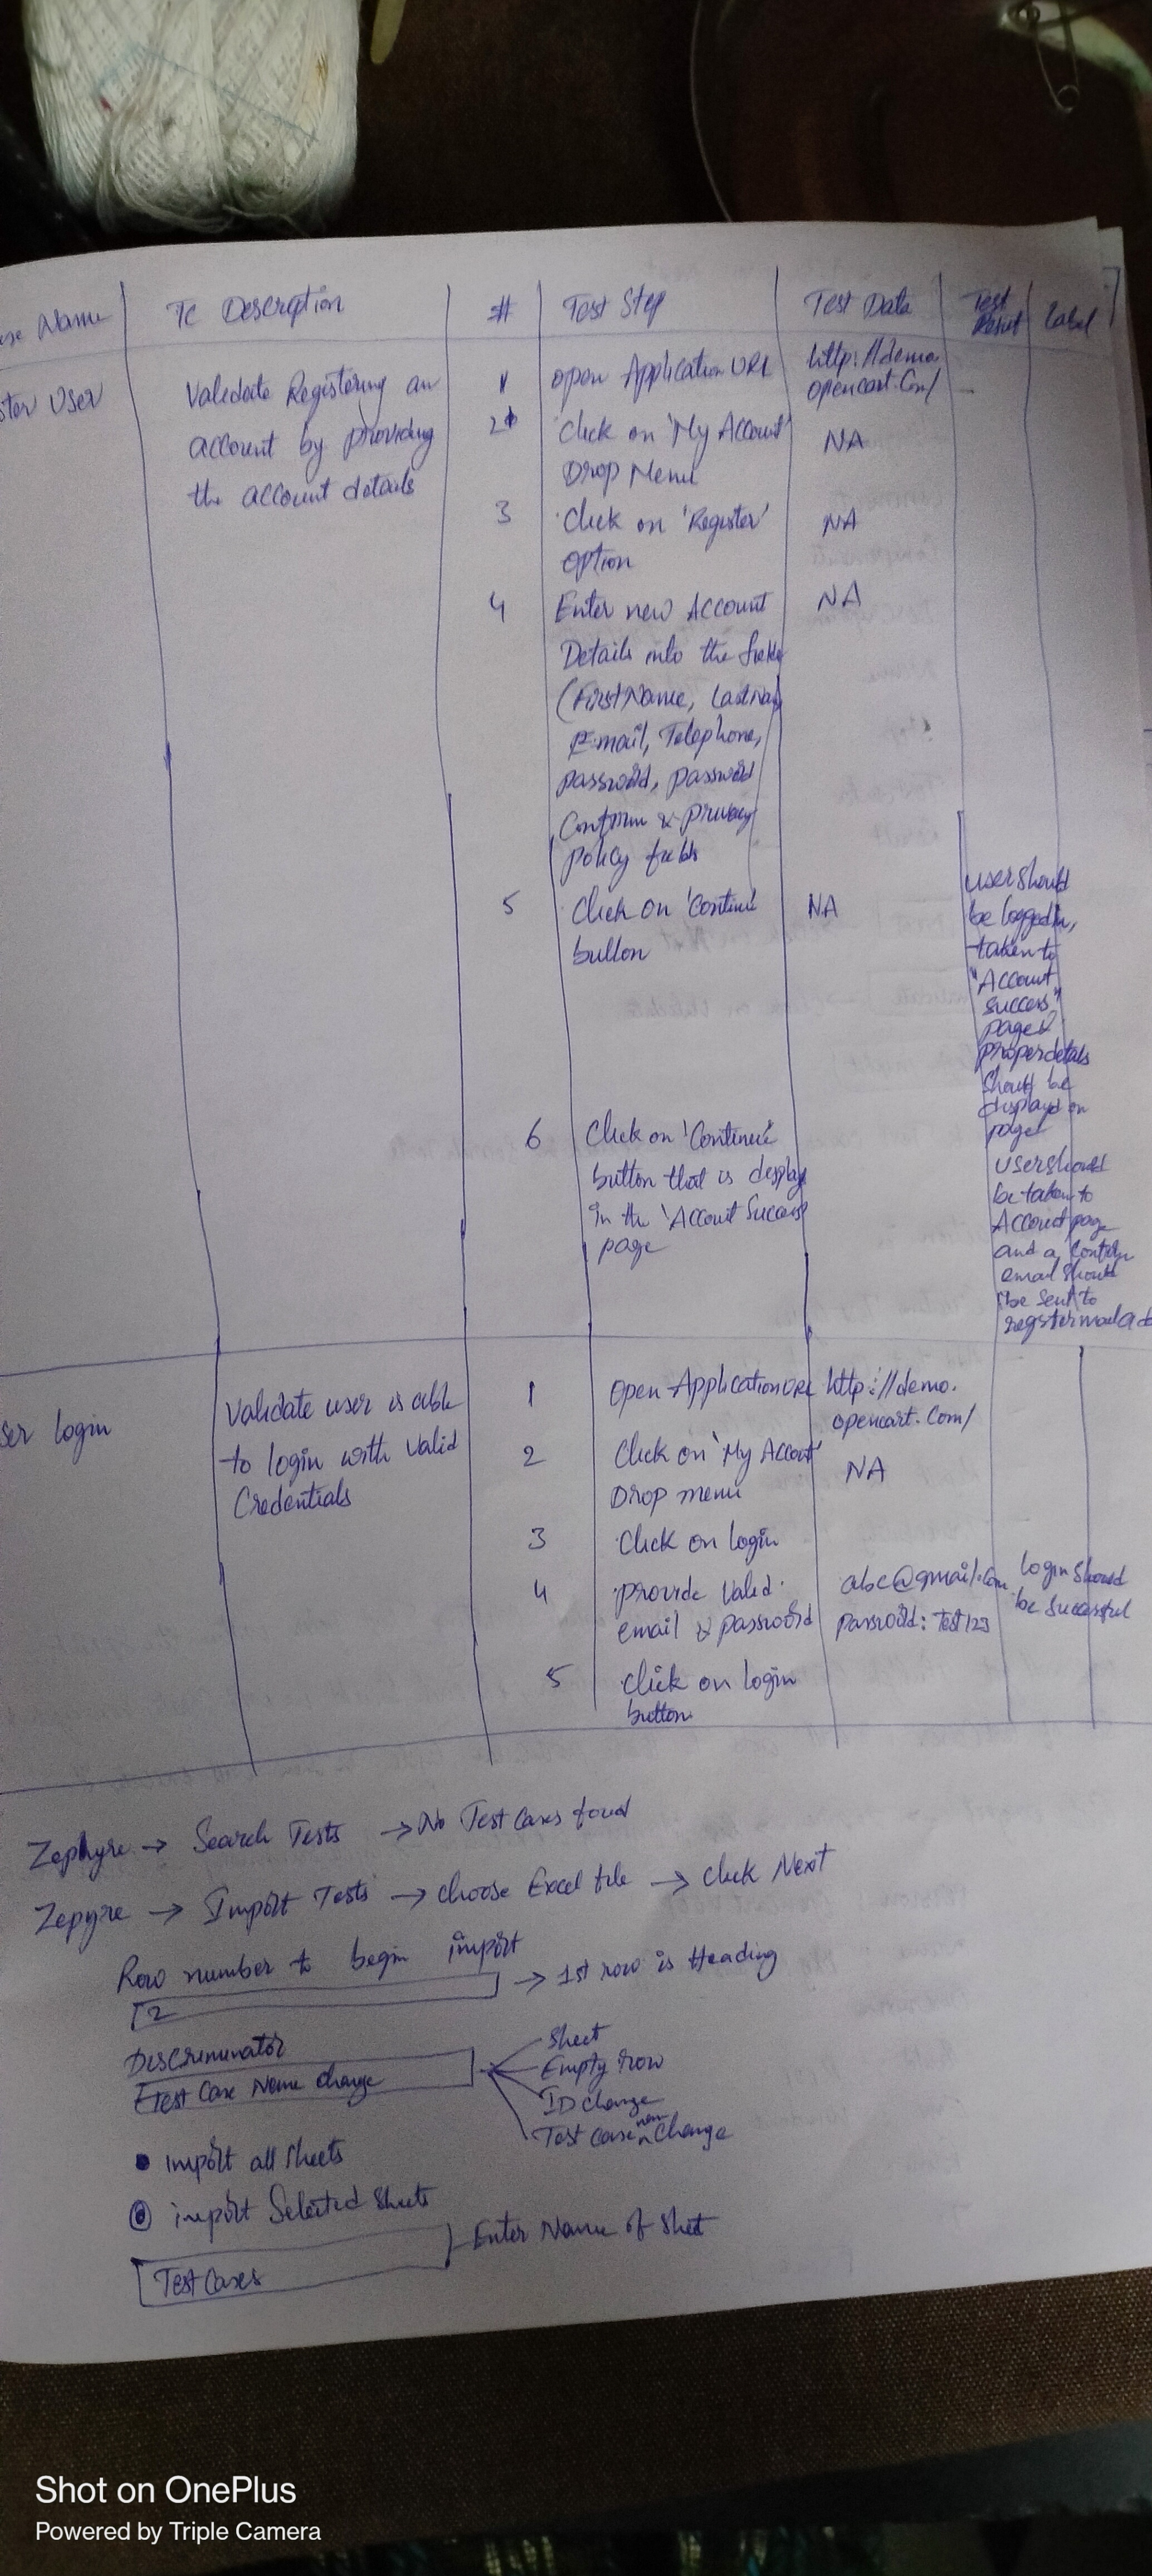 se Name TC Description # Test Step Test Data Test Result Label
ster User Validate Registering an 1 open Application URL http://demo
opencart.com/
account by providing 2 Click on 'My Account' NA
Drop Menu
the account details
3 Click on 'Register' NA
option
4 Enter new Account NA
Details into the fields
(First Name, Last Nam
E-mail, Telephone,
password, password
Confirm & privacy
policy fields
5 Click on 'Continue' NA
button
user should
be logged in,
taken to
"Account
success"
page &
proper details
should be
displayed on
page
6 Click on 'Continue'
button that is display
in the 'Account Success'
page
user should
be taken to
Account page
and a Confirm
email should
be sent to
register mail ad
ser login Validate user is able 1 Open Application URL http://demo.
opencart.com/
to login with Valid 2 Click on 'My Account' NA
Credentials Drop menu
3 Click on login
4 provide Valid abc@gmail.com login should
email & password password: Test123 be successful
5 click on login
button
Zephyre → Search Tests → No Test Cases found
Zepyre → Import Tests → choose Excel file → click Next
Row number to begin import
2 → 1st row is Heading
Discriminator
Test Case Name change
Sheet
Empty row
ID change
Test case name change
import all sheets
import Selected sheets
Test Cases Enter Name of Sheet
Shot on OnePlus
Powered by Triple Camera